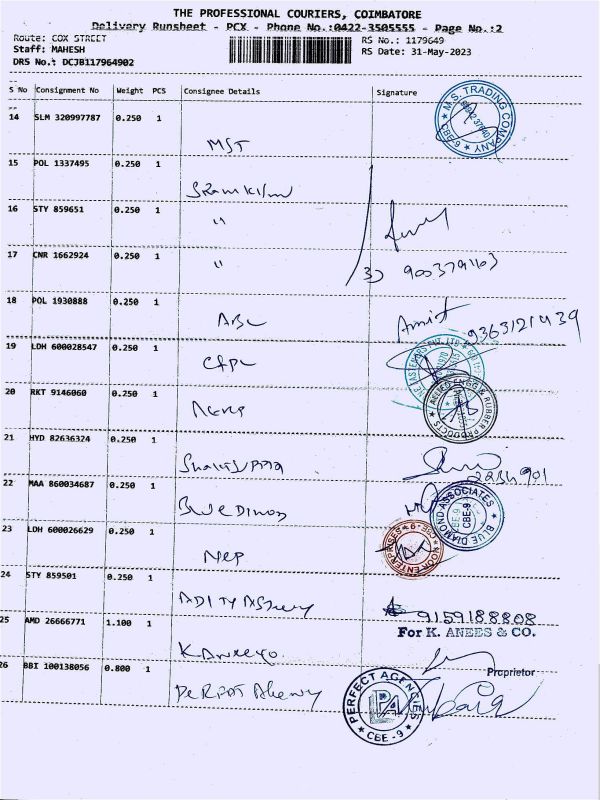 THE PROFESSIONAL COURIERS, COIMBATORE
Delivery Runsheet - PCX - Phone No.:0422-3505555 - Page No.:2
Route: COX STREET
RS No.: 1179649
Staff: MAHESH
RS Date: 31-May-2023
DRS No.: DCJB117964902
S No Consignment No Weight PCS Consignee Details Signature
14 SLM 320997787 0.250 1
MST
M.S. TRADING COMPANY CBE-9
15 POL 1337495 0.250 1
16 STY 859651 0.250 1
"
17 CNR 1662924 0.250 1
"
18 POL 1930888 0.250 1
Amit
19 LDH 600028547 0.250 1
20 RKT 9146060 0.250 1
& RUBBER PRODUCTS
21 HYD 82636324 0.250 1
22 MAA 860034687 0.250 1
BLUE DIMOD
BLUE DIAMOND ASSOCIATES CBE-9
23 LDH 600026629 0.250 1
NEP
NOOR ENTERPRISES CBE-9
24 STY 859501 0.250 1
9159188808
25 AMD 26666771 1.100 1
For K. ANEES & CO.
Proprietor
26 BBI 100138056 0.800 1
PERFECT AGENCIES CBE-9